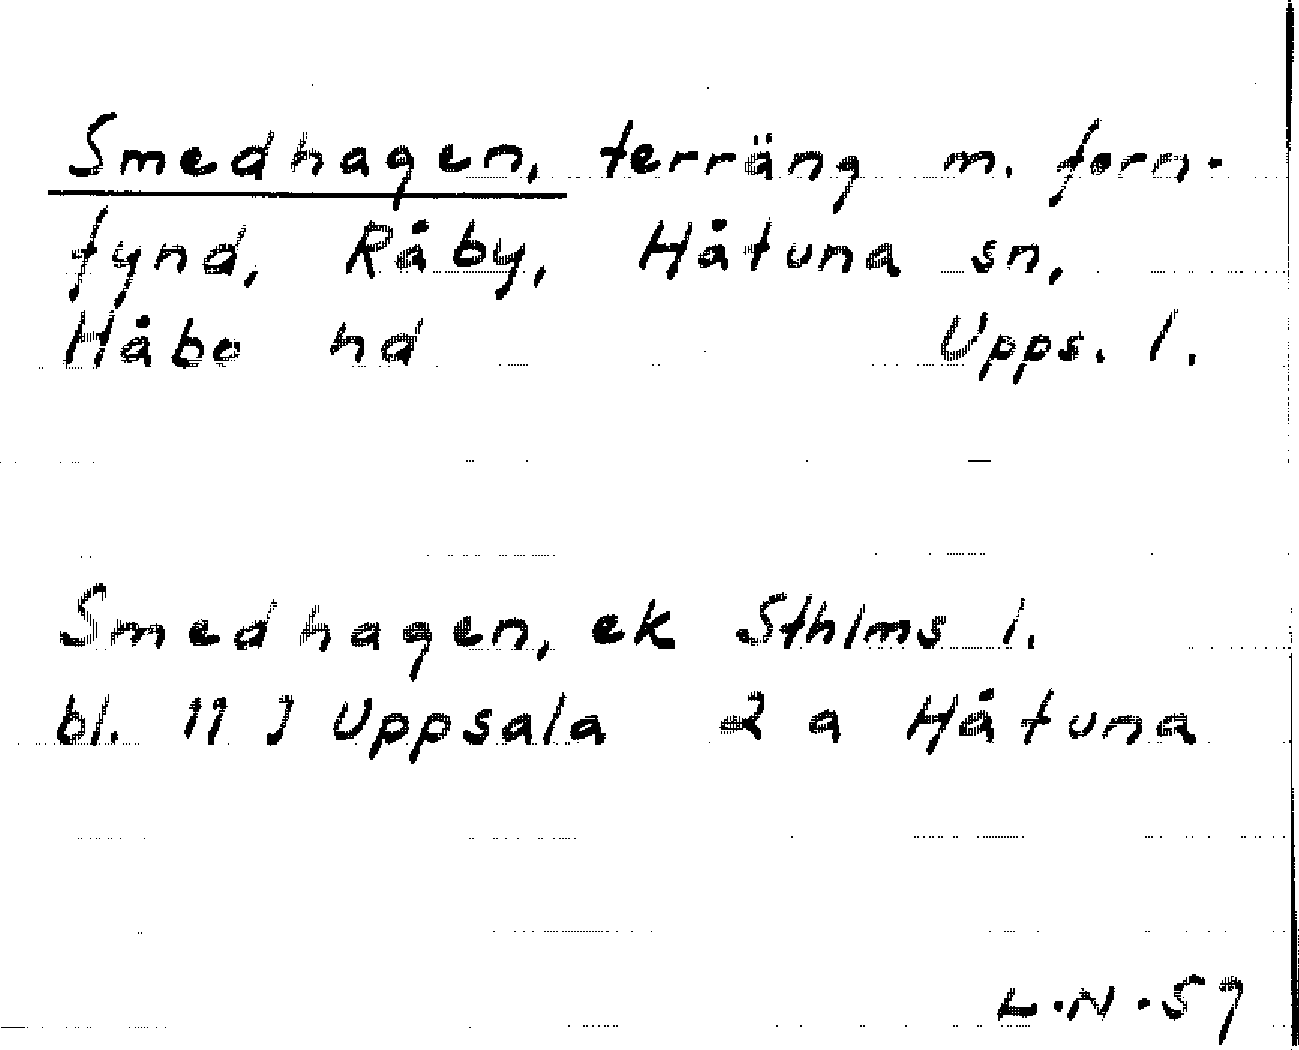 Smedhagen, terräng m. forn-
fynd, Råby, Håtuna sn,
Håbo hd Upps. l.
Smedhagen, ek Sthlms l.
bl. 11 J Uppsala 2 a Håtuna
L.N.59